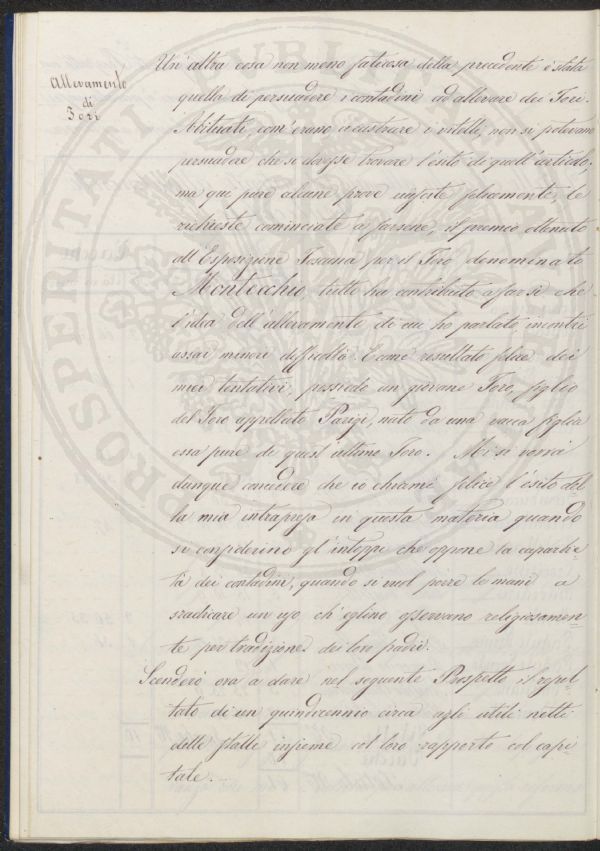 Allevamento
di
Tori
Un' altra cosa non meno faticosa della precedente è stata
quella di persuadere i contadini ad allevare dei Tori.
Abituati, com' erano a castrare i vitelli, non si potevano
persuadere che si dovesse trovare l'esito di quell' articolo;
ma qui pure alcune prove riuscite felicemente, le
richieste cominciate a farsene, il premio ottenuto
all' Esposizione Toscana per il Toro denominato
Montecchio, tutto ha contribuito a far sì che
l'idea dell' allevamento di cui ho parlato, incontri
assai minori difficoltà. E come resultato felice dei
miei tentativi, possiedo un giovane Toro, figlio
del Toro appellato Parigi, nato da una vacca figlia
essa pure di quest' ultimo Toro. Mi si vorrà
dunque concedere che io chiami felice l'esito del-
la mia intrapresa in questa materia quando
si considerino gl' intoppi che oppone la caparbie-
tà dei contadini, quando si vuol porre le mani a
sradicare un uso ch' eglino osservano religiosamen-
te per tradizione dei loro padri.
Scenderò ora a dare nel seguente Prospetto il resul-
tato di un quindicennio circa agli utili netti
delle stalle insieme col loro rapporto col capi-
tale.
PROSPERITATI PUBLICAE